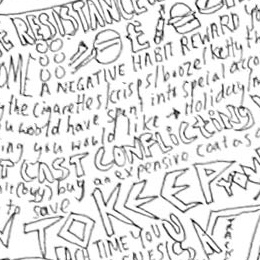 E RESISTANCE
£
OME A NEGATIVE HABIT REWARD
the cigarettes/crisps/booze/ketty th
u would have spent into special acco
ing you would like → Holiday/
T CAST CONFLICTING
(buy) buy an expensive coat as
to save
TO KEEP
EACH TIME YOU
SALES